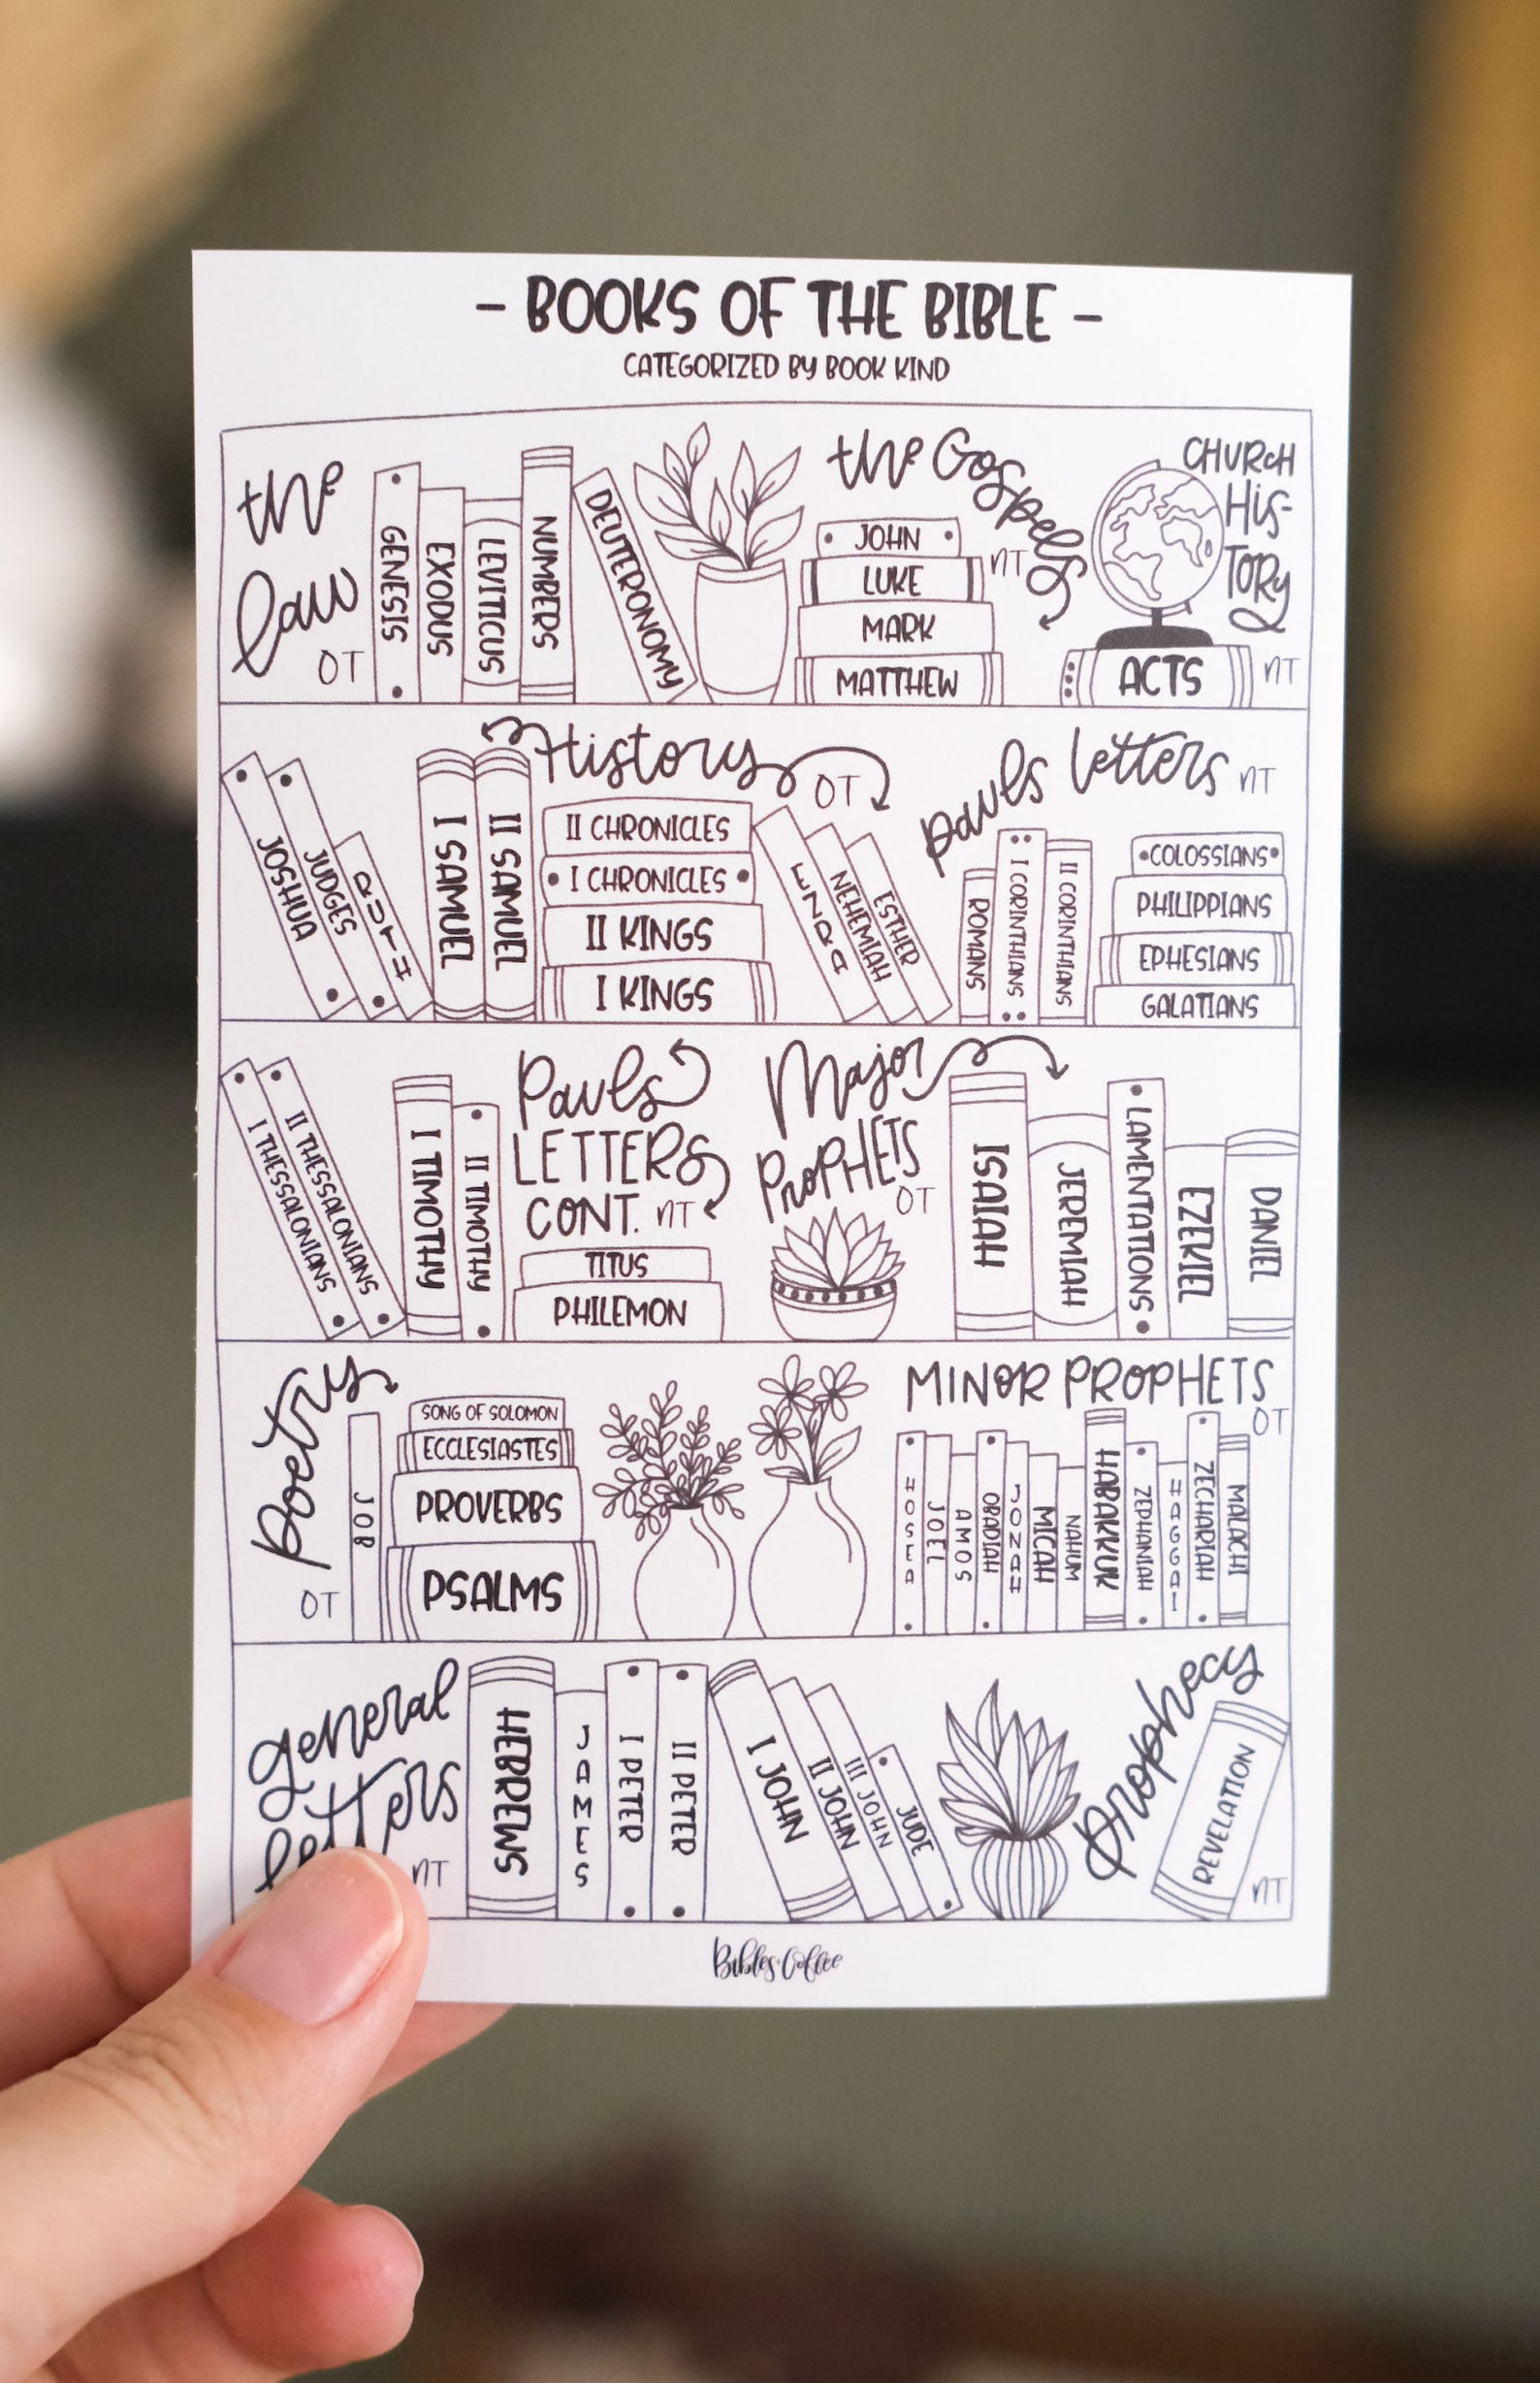 - BOOKS OF THE BIBLE -
CATEGORIZED BY BOOK KIND
the
law
OT
GENESIS
EXODUS
LEVITICUS
NUMBERS
DEUTERONOMY
the Gospels
NT
JOHN
LUKE
MARK
MATTHEW
CHURCH
HIS-
TORY
NT
ACTS
JOSHUA
JUDGES
RUTH
I SAMUEL
II SAMUEL
History
OT
II CHRONICLES
I CHRONICLES
II KINGS
I KINGS
EZRA
NEHEMIAH
ESTHER
pauls letters NT
ROMANS
I CORINTHIANS
II CORINTHIANS
•COLOSSIANS•
PHILIPPIANS
EPHESIANS
GALATIANS
I THESSALONIANS
II THESSALONIANS
I TIMOTHY
II TIMOTHY
Pauls
LETTERS
CONT. NT
TITUS
PHILEMON
Major
PROPHETS
OT
ISAIAH
JEREMIAH
LAMENTATIONS
EZEKIEL
DANIEL
Poetry
OT
JOB
SONG OF SOLOMON
ECCLESIASTES
PROVERBS
PSALMS
MINOR PROPHETS
OT
HOSEA
JOEL
AMOS
OBADIAH
JONAH
MICAH
NAHUM
HABAKKUK
ZEPHANIAH
HAGGAI
ZECHARIAH
MALACHI
general
letters
NT
HEBREWS
JAMES
I PETER
II PETER
I JOHN
II JOHN
III JOHN
JUDE
prophecy
REVELATION
NT
Bibles Coffee